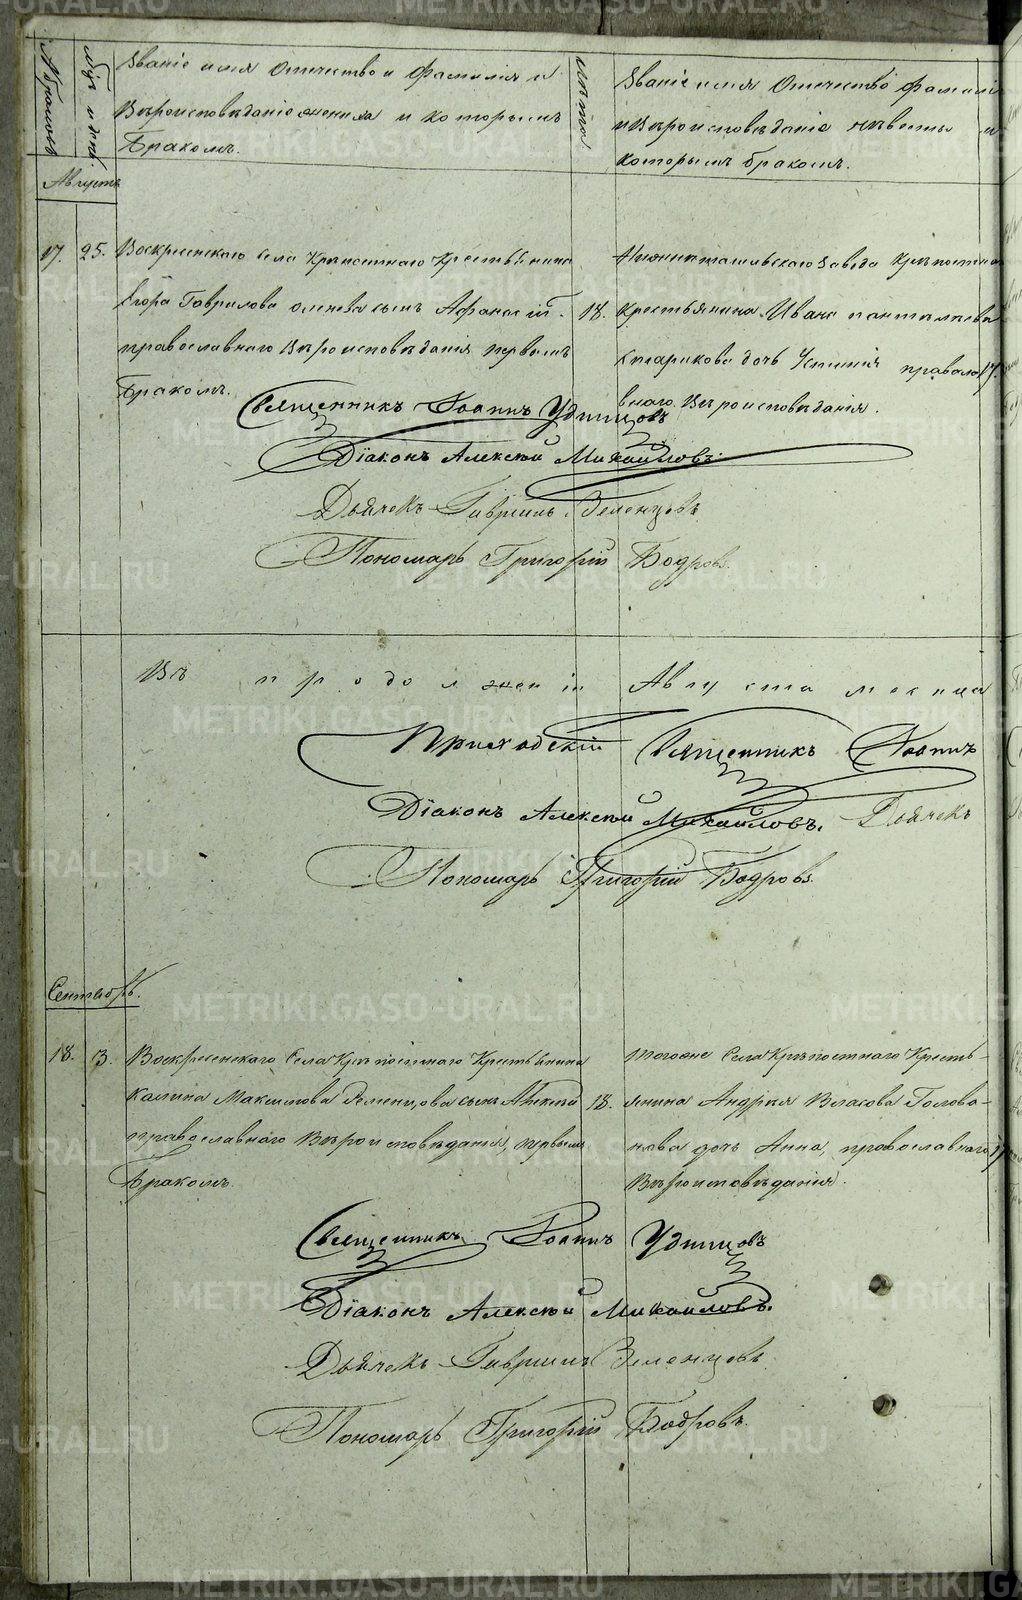 METRIKI.GASO-URAL.RU
№ браковъ
мѣс. и день
Званіе имя Отечество и Фамилія и
Вѣроисповѣданіе жениха и которымъ
Бракомъ.
лѣта
Званіе имя Отечество Фамилія
и Вѣроисповѣданіе невесты и
которымъ бракомъ.
Августъ
17. 25.
Воскресенскаго села Крѣпостнаго Крестьянина
Егора Гаврилова сынъ Афанасій.
православнаго Вѣроисповѣданія первымъ
Бракомъ.
18.
Нижнетагильскаго Завода Крѣпостна
Крестьянина Ивана пантелѣева
старикова дочь Устинія правосла
внаго Вѣроисповѣданія.
17.
Священникъ Іоаннъ Удинцовъ
Діаконъ Алексѣй Михайловъ.
Дьячекъ Гавріилъ Зеленцовъ
Пономарь Григорій Бодровъ.
Въ продолженіи Августа месяца
Приходскій Священникъ Іоаннъ
Діаконъ Алексѣй Михайловъ. Дьячекъ
Пономарь Григорій Бодровъ.
Сентябрь.
18. 3.
Воскресенскаго Села Крѣпостнаго Крестьянина
Калина Максимова сынъ Алексѣй
православнаго Вѣроисповѣданія, первымъ
Бракомъ.
18.
тогоже Села Крѣпостнаго Кресть-
янина Андрея Власова Голова-
нова дочь Анна, православнаго
Вѣроисповѣданія.
17
Священникъ Іоаннъ Удинцовъ
Діаконъ Алексѣй Михайловъ.
Дьячекъ Гавріилъ Зеленцовъ.
Пономарь Григорій Бодровъ.